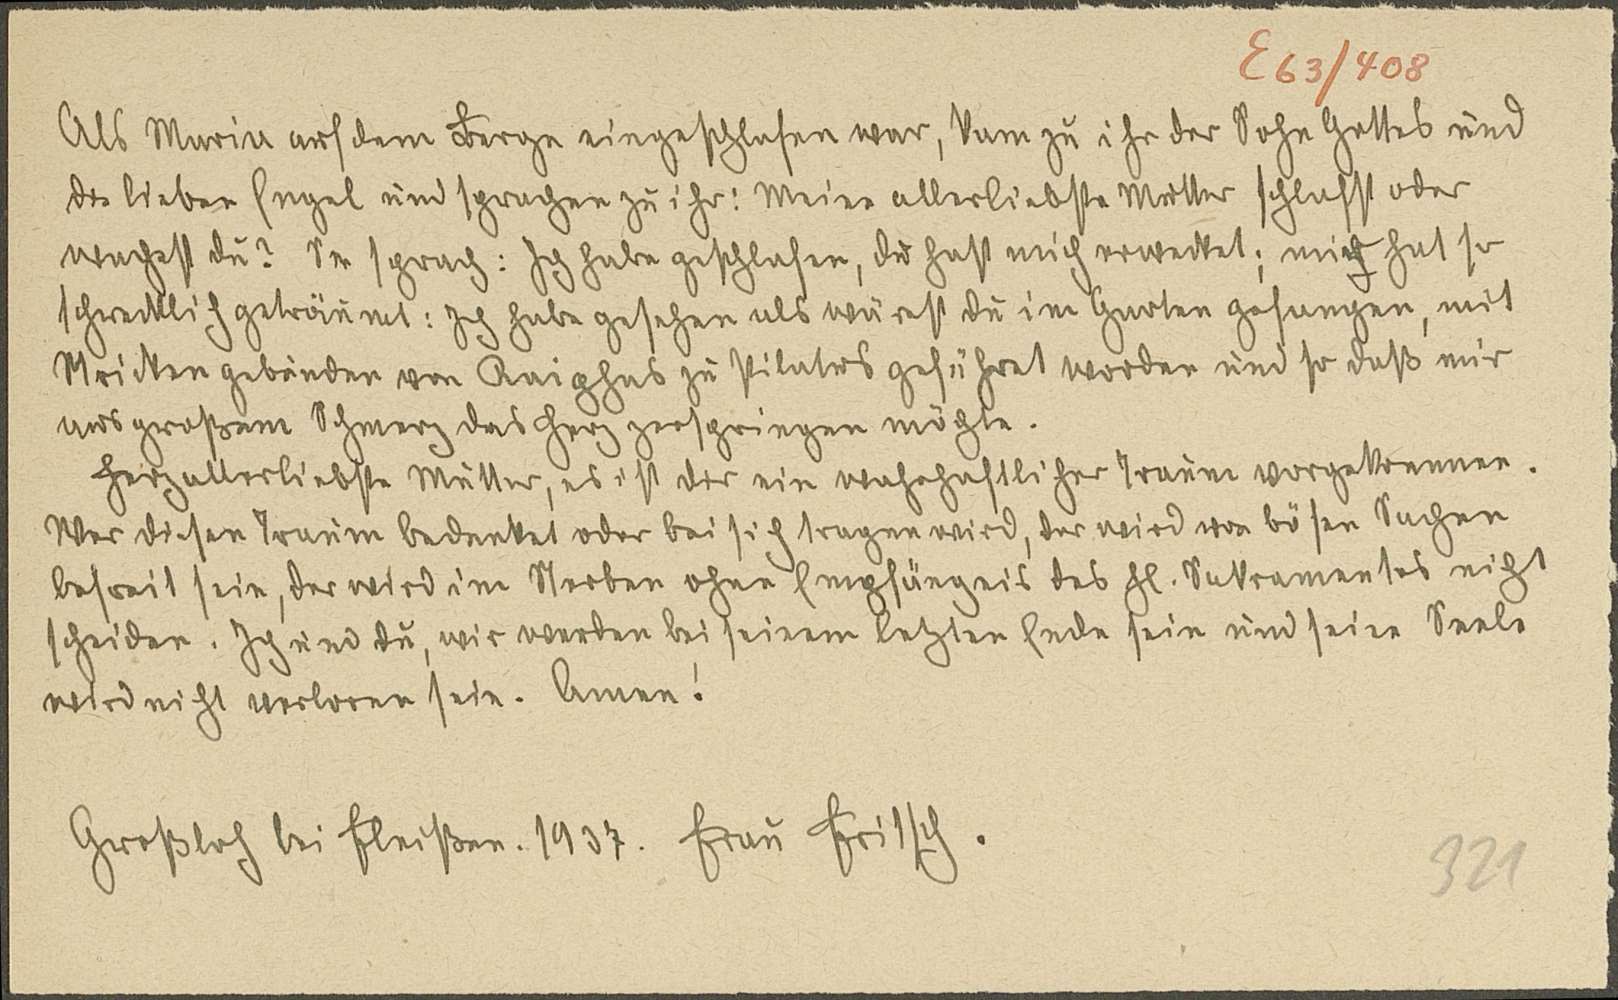 E 63/408
Als Maria auf dem Berge eingeschlafen war, kam zu ihr der Sohn Gottes und
die lieben Engel und sprachen zu ihr: Meine allerliebste Mutter schlafst oder
wachest du? Sie sprach: Ich habe geschlafen, du hast mich erwecket; mich hat so
schrecklich geträumt: Ich habe gesehen als wärest du im Garten gefangen, mit
Stricken gebunden von Kaiphas zu Pilatus geführet worden und so daß mir
aus großem Schmerz das Herz zerspringen möchte.
Herzallerliebste Mutter, es ist dir ein wahrhaftlicher Traum vorgekommen.
Wer diesen Traum bedenket oder bei sich tragen wird, der wird von bösen Sachen
befreit sein, der wird im Sterben ohne Empfängnis des hl. Sakramentes nicht
scheiden. Ich und du, wir werden bei seinem letzten Ende sein und seine Seele
wird nicht verloren sein. Amen!
Großloh bei Fleißen. 1937. Frau Fritsch.
321